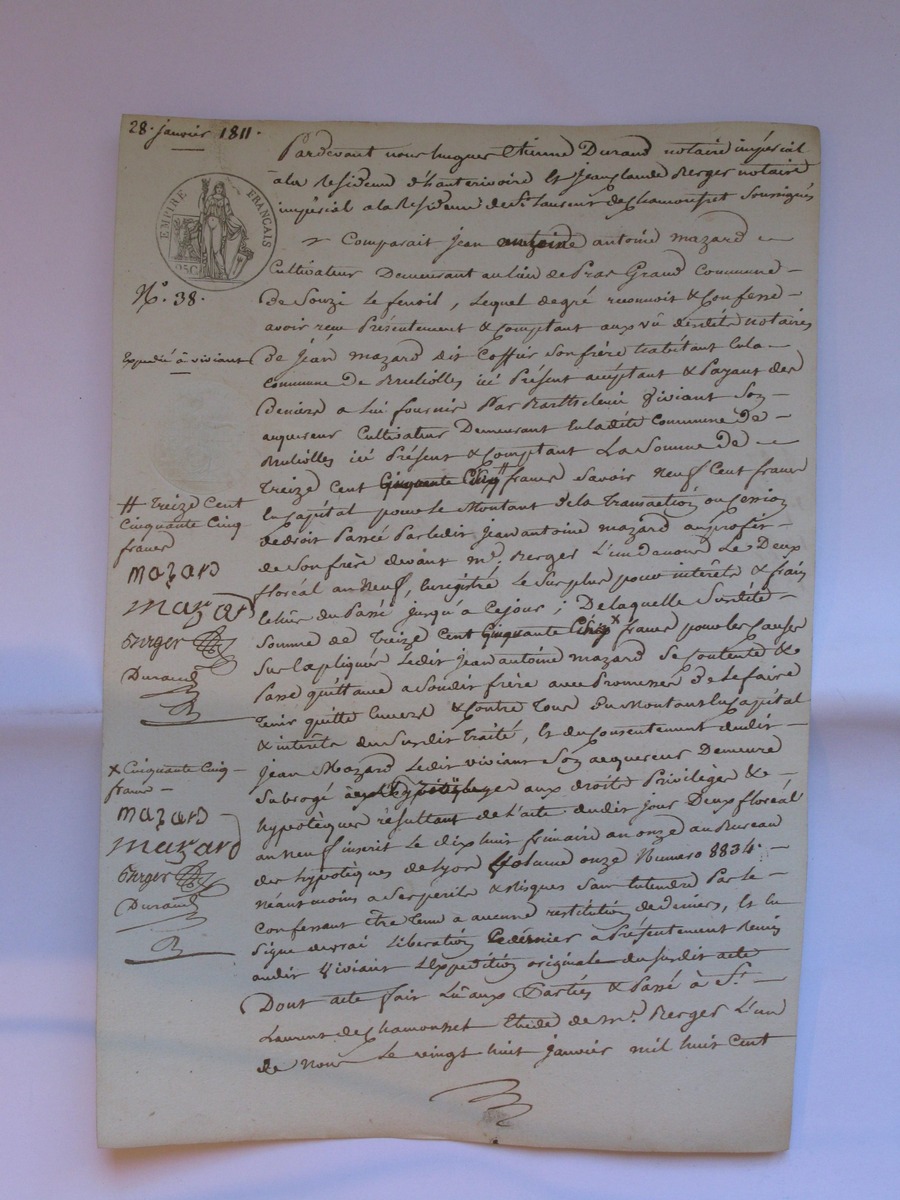 28. janvier 1811.
Pardevant nous hugues Etienne Durand notaire impérial
à la Residence d'hauterivoire & jean claude Berger notaire
impérial a la Residence de St. Laurent de Chamousset Soussignés
EMPIRE FRANÇAIS
Comparait jean antoine mazard
N°. 38.
Cultivateur Demeurant au lieu de Pras Grand Commune
De Souzi Le fenoil, Lequel de gré reconnoit & Confesse
avoir reçu Présentement & Comptant aux vû desdits notaires
Expedié à viviant
De jean mazard dit Coffier Son frère habitant en la
Commune De Brulliolles ici Présent acceptant & Payant des
Deniers a Lui fournis Par Barthelemi Viviant Son
acquereur Cultivateur Demeurant en ladite Commune De
Brulliolles ici Présent & Comptant La Somme De
treize Cent francs Savoir Neuf Cent francs
# treize Cent
Cinquante Cinq
francs
en Capital pour le Montant De la transaction ou Cession
de droit Passé Par ledit Jean antoine mazard au profit
de Son frère devant mr. Berger L'un de nous Le Deux
floréal an Neuf, enregistré Le Surplus pour intérêts & frais
mazard
mazard
Berger
Durand
du Passé jusqu'a Ce jour; De laquelle Susdite
Somme de treize Cent x francs pour les Causes
Sus Ledit jean antoine mazard Se Contente &
Passe quittance a Son dit frère avec Promesses De le faire
tenir quitte envers & Contre Tous Du Montant en Capital
& intérêts du Susdit Traité, Et du Consentement dudit
x Cinquante Cinq
francs
jean Mazard Ledit viviant Son acquereur Demeure
Subrogé aux droits Privilèges &
hypotèques résultant de l'acte dudit jour Deux floréal
mazard
mazard
Berger
Durand
an Neuf inscrit Le dix huit frimaire an onze au Bureau
des hypotèques de Lyon Volume onze Numero 8834.
Néanmoins a Ses perils & Risques Sans entendre Par le
Confessant être tenu a aucune restitution de deniers, Et en
Signe de vrai Libération Ce dernier a Présentement Remis
audit Viviant L'Expedition originale du Susdit acte
Dont acte fait Lu aux Parties & Passé à St.
Laurent de Chamousset Etude de mr. Berger L'un
de Nous Le vingt huit janvier mil huit Cent